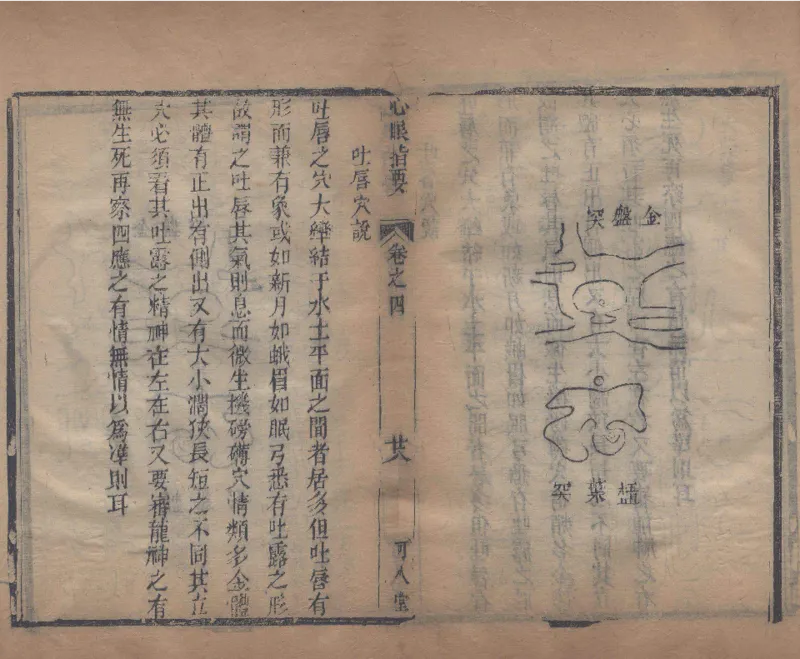 金盤突
荷葉突
心眼指要
卷之四
廿八
可久堂
吐唇穴說
吐唇之穴大縂結于水土平面之間者居多但吐唇有
形而兼有象或如新月如蛾眉如眠弓悉有吐露之形
故謂之吐唇其氣則息而微生機磅礴穴情類多金體
其體有正出有側出又有大小濶狹長短之不同其立
穴必須看其吐露之精神在左在右又要審龍神之有
無生死再察四應之有情無情以為準則耳